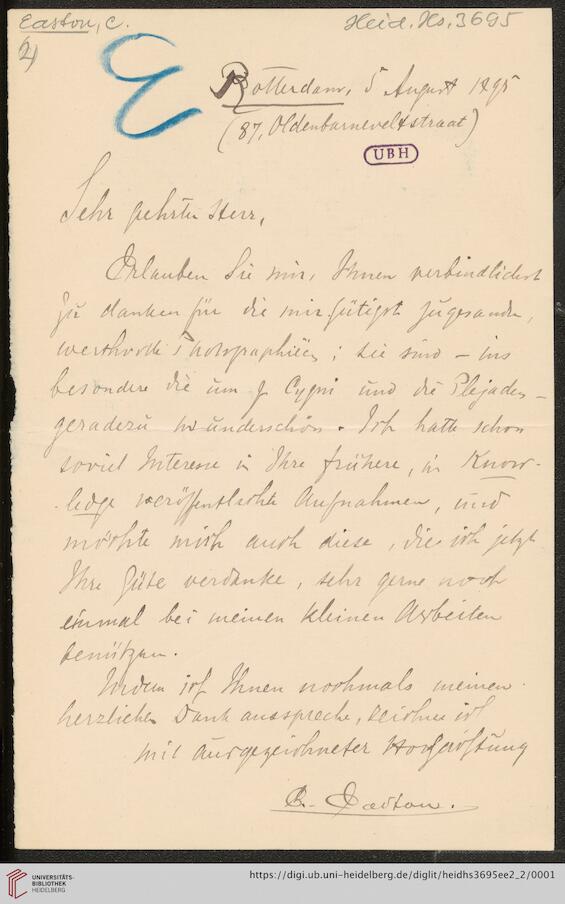 Easton, C.
Heid. Hs. 3695
2)
E
Rotterdam, 5 August 1895
(87, Oldenbarneveltstraat)
UBH
Sehr geehrter Herr,
Erlauben Sie mir, Ihnen verbindlichst
zu danken für die mir gütigst zugesandte,
werthvolle Photographiën; sie sind – ins
besondere die um γ Cygni und die Plejaden –
geradezu wunderschön. Ich hatte schon
soviel Interesse in Ihre frühere, in Know-
ledge veröffentlichte Aufnahmen, und
möchte mich auch diese, die ich jetzt
Ihre Güte verdanke, sehr gerne noch
einmal bei meinen kleinen Arbeiten
benützen.
Indem ich Ihnen nochmals meinen
herzlichen Dank ausspreche, zeichne ich
mit ausgezeichneter Hochachtung
C. Easton.
UNIVERSITÄTS-
BIBLIOTHEK
HEIDELBERG
https://digi.ub.uni-heidelberg.de/diglit/heidhs3695ee2_2/0001